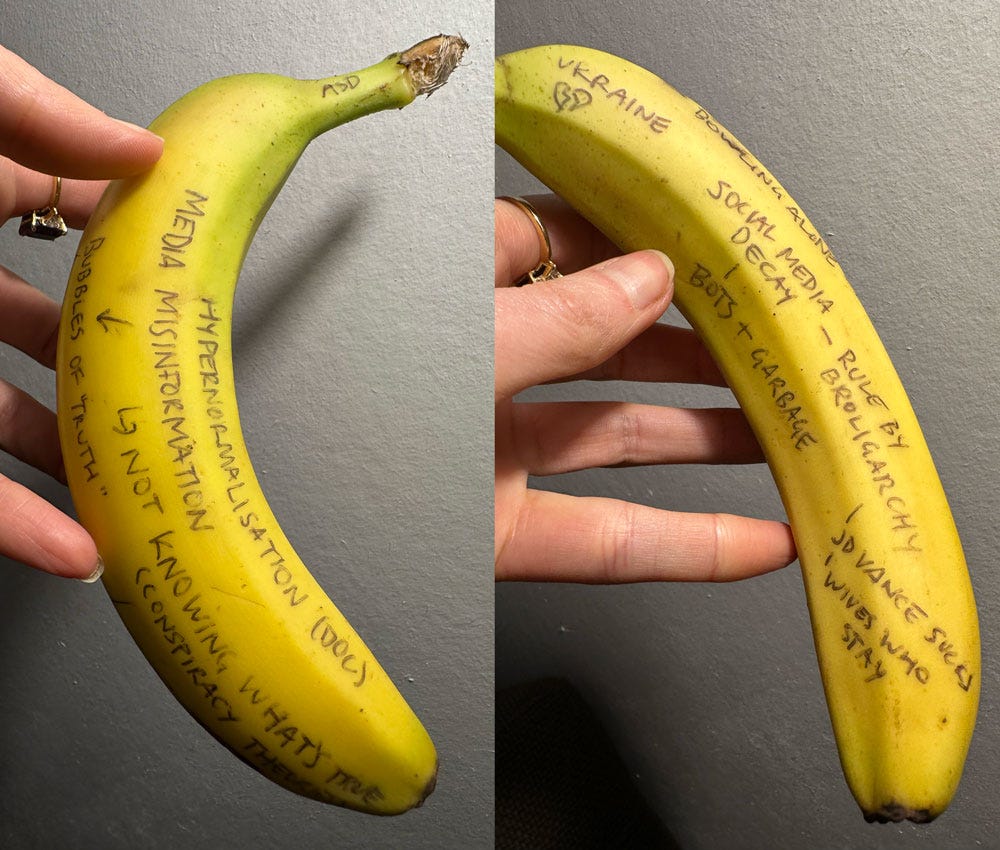 ASD
MEDIA MISINFORMATION
HYPERNORMALISATION (DOC)
BUBBLES OF "TRUTH"
↳ NOT KNOWING WHAT'S TRUE
(CONSPIRACY
UKRAINE
BOWLING ALONE
SOCIAL MEDIA – RULE BY
DECAY
BROLIGARCHY
BOTS + GARBAGE
JD VANCE SUCKS
WIVES WHO
STAY